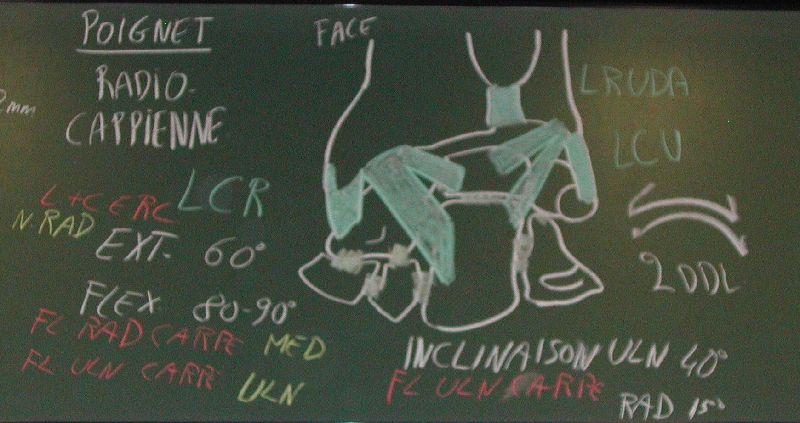 POIGNET
FACE
RADIO-
CARPIENNE
2mm
LRUDA
LCU
LCR
L + C E RC
N. RAD
EXT. 60°
2DDL
FLEX 80-90°
FL RAD CARPE MED
FL ULN CARPE ULN
INCLINAISON ULN 40°
FL ULN CARPE
RAD 15°